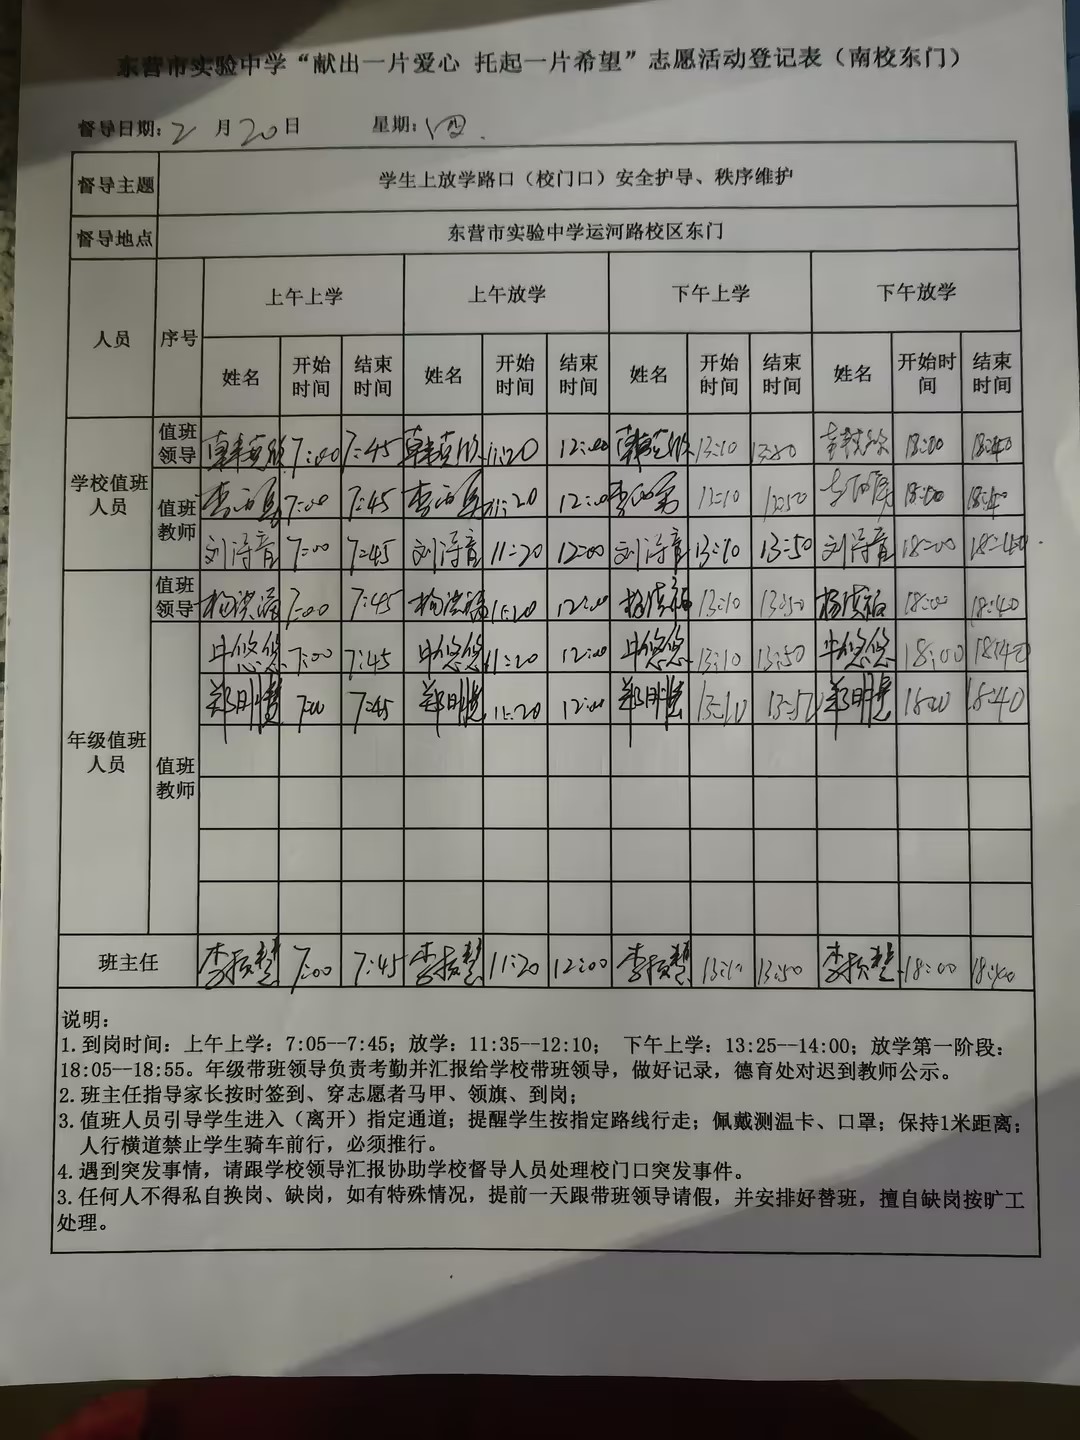 东营市实验中学“献出一片爱心 托起一片希望”志愿活动登记表（南校东门）
督导日期：2 月 20 日 星期：四.
督导主题 学生上放学路口（校门口）安全护导、秩序维护
督导地点 东营市实验中学运河路校区东门
人员 序号 上午上学 上午放学 下午上学 下午放学
姓名 开始时间 结束时间 姓名 开始时间 结束时间 姓名 开始时间 结束时间 姓名 开始时间 结束时间
学校值班人员
值班领导 7:00 7:45 11:20 12:00 13:10 13:50 18:00 18:40
值班教师 7:00 7:45 11:20 12:00 13:10 13:50 18:00 18:40
刘诗音 7:00 7:45 刘诗音 11:20 12:00 刘诗音 13:10 13:50 刘诗音 18:00 18:40
年级值班人员
值班领导 7:00 7:45 11:20 12:00 13:10 13:50 18:00 18:40
值班教师
悠悠 7:00 7:45 悠悠 11:20 12:00 悠悠 13:10 13:50 悠悠 18:00 18:40
郑明慧 7:00 7:45 郑明慧 11:20 12:00 郑明慧 13:10 郑明慧 18:00 18:40
班主任 李振慧 7:00 7:45 李振慧 11:20 12:00 李振慧 13:10 13:50 李振慧 18:00 18:40
说明：
1.到岗时间：上午上学：7:05--7:45；放学：11:35--12:10； 下午上学：13:25--14:00；放学第一阶段：
18:05--18:55。年级带班领导负责考勤并汇报给学校带班领导，做好记录，德育处对迟到教师公示。
2.班主任指导家长按时签到、穿志愿者马甲、领旗、到岗；
3.值班人员引导学生进入（离开）指定通道；提醒学生按指定路线行走；佩戴测温卡、口罩；保持1米距离；
人行横道禁止学生骑车前行，必须推行。
4.遇到突发事情，请跟学校领导汇报协助学校督导人员处理校门口突发事件。
3.任何人不得私自换岗、缺岗，如有特殊情况，提前一天跟带班领导请假，并安排好替班，擅自缺岗按旷工
处理。